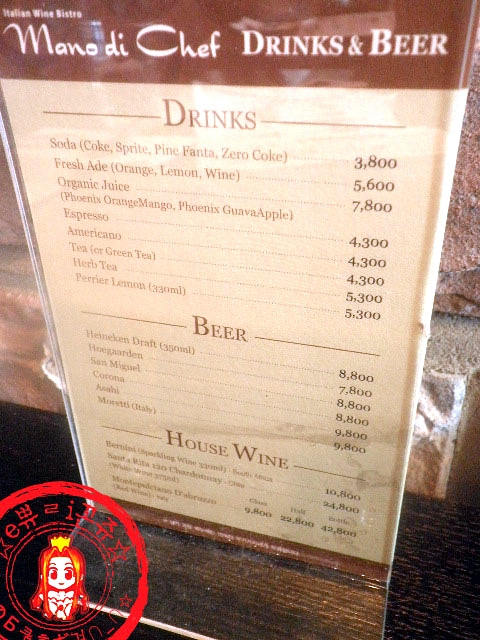 Italian Wine Bistro
Mano di Chef DRINKS & BEER
DRINKS
Soda (Coke, Sprite, Pine Fanta, Zero Coke) 3,800
Fresh Ade (Orange, Lemon, Wine) 5,600
Organic Juice 7,800
(Phoenix OrangeMango, Phoenix GuavaApple)
Espresso 4,300
Americano 4,300
Tea (or Green Tea) 4,300
Herb Tea 5,300
Perrier Lemon (330ml) 5,300
BEER
Heineken Draft (350ml) 8,800
Hoegaarden 7,800
San Miguel 8,800
Corona 8,800
Asahi 9,800
Moretti (Italy) 9,800
HOUSE WINE
Bernini (Sparkling Wine 330ml) - South Africa 10,800
Santa Rita 120 Chardonnay - Chile 24,800
(White Wine 375ml)
Glass Half Bottle
Montepulciano D'abruzzo 9,800 22,800 42,800
(Red Wine) - Italy